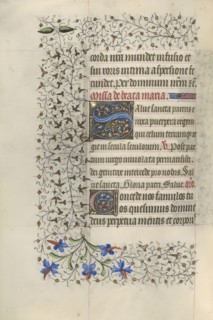 corda nr̄a mundet infusio et
sui roris intima aspersione fe
cundet. Per dominum nr̄m
Missa de beata maria.
Salue sancta parens e
nixa puerpera regem
qui celum terramq3 re
git in secula seculorum. V̄. Post par
tum uirgo inuiolata permansisti.
dei genitrix intercede pro nobis. Sal
ue sancta. Gloria patri. Salue.
Concede nos famulos tu
os quesumus domine
deus perpetua mentis et corpori